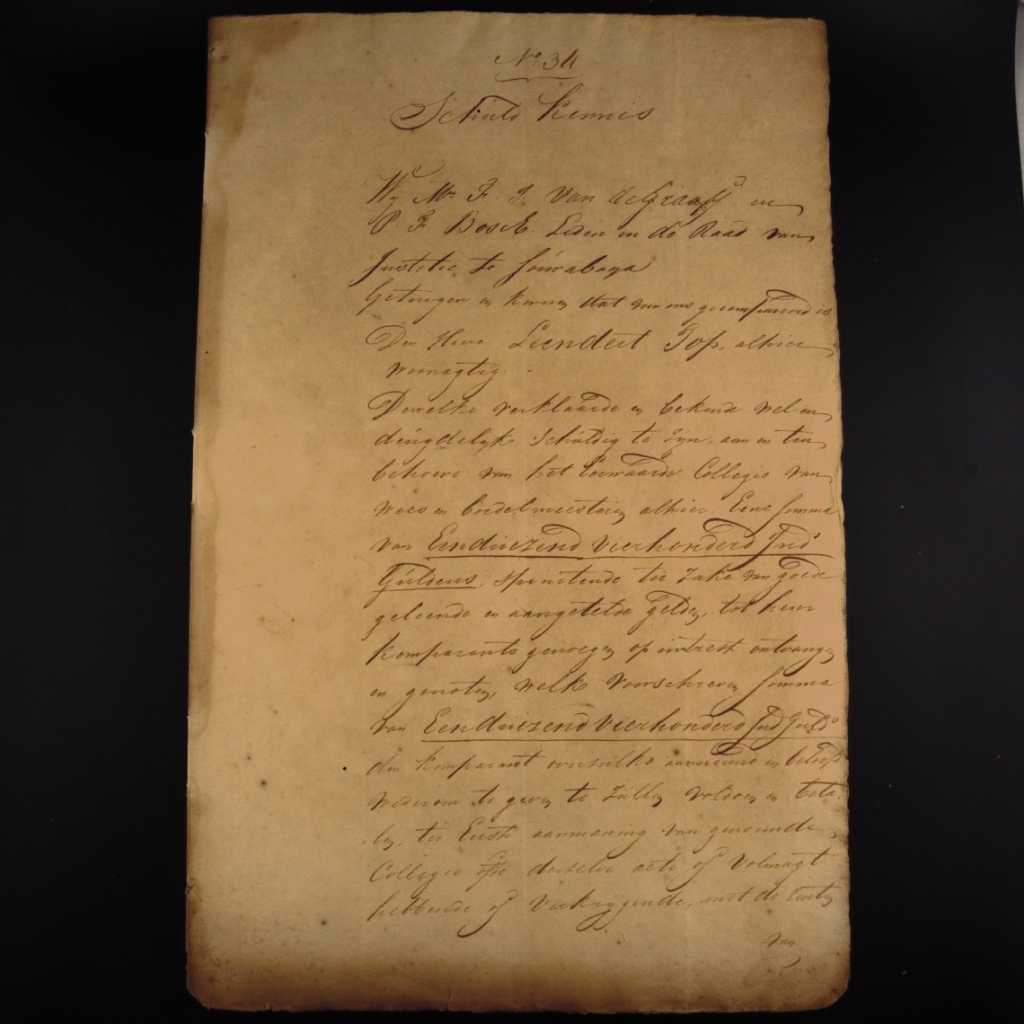 No 34
Schuld Kennis
Wy Mr F. J. Van de Graaff en
P. F. Bosch Leden in de Raad van
Justitie te Sourabaya
Getuigen en kennen dat voor ons gecompareerd is
Den Heer Leendert Top, alhier
woonagtig.
Dewelke verklaarde en bekende wel en
deugdelijk Schuldig te Zyn, aan en ten
behoeve van het Eerwaarde Collegie van
Wees en boedelmeesteren alhier Eene somma
van Eenduizend vierhonderd Ind
Guldens, spruitende ter Zake van goede
geleende en aangetelde gelden, tot hun
komparants genoegen op intrest ontvangen
en genoten, welke voorschreven somma
van Eenduizend vierhonderd Ind Guld
den komparant aanneemd en beloofd
wederom te geven te Zullen voldoen en beta
len, ter Eerste aanmaning van genoemde
Collegie ofte derzelver acte of Volmagt
hebbende of Verkrygende, met de
van